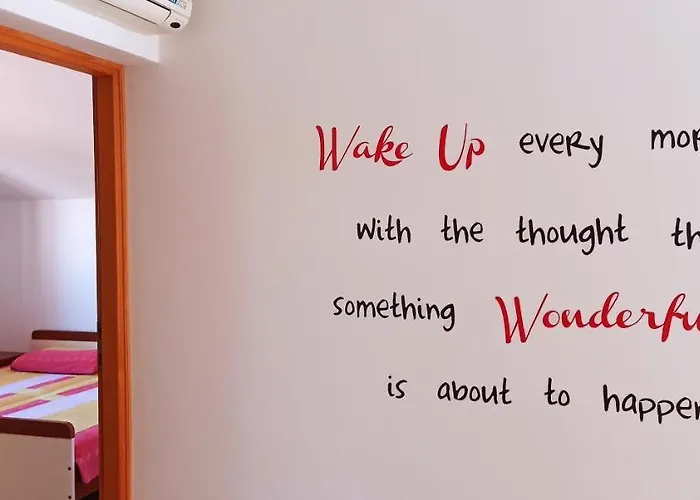 Wake Up every mor
with the thought th
something Wonderfu
is about to happen